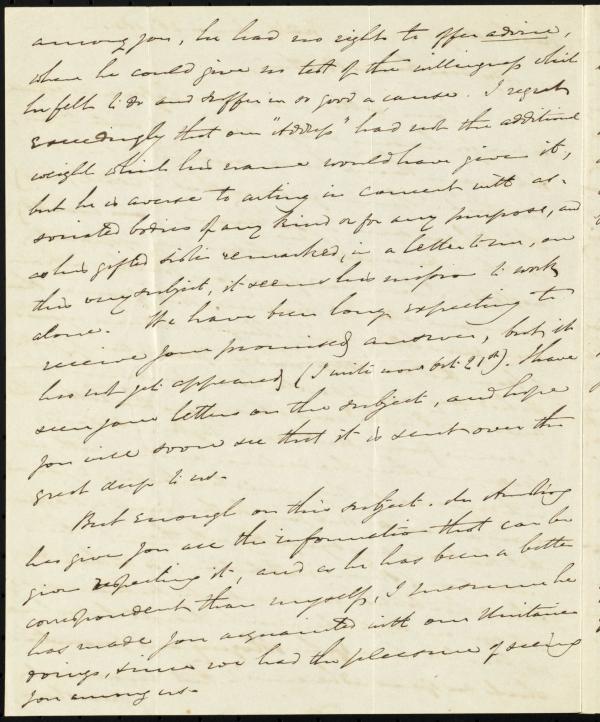 among you, he had no right to offer advice,
where he could give no test of the willingness which
he felt to do and suffer in so good a cause. I regret
exceedingly that our "Address" had not the additional
weight which his name would have given it,
but he is averse to acting in concert with as-
sociated bodies of any kind or for any purpose, and
as his gifted sister remarked, in a letter to me, on
this very subject, it seems his mission to work
alone. We have been long expecting to
receive your promised answer, but it
has not yet appeared (I write now Oct. 21st). I have
seen your letters on the subject, and hope
you will soon see that it is sent over the
great deep to us.
But enough on this subject. Mr Armstrong
has given you all the information that can be
given respecting it, and as he has been a better
correspondent than myself, I presume he
has made you acquainted with our Unitarian
doings, since we had the pleasure of seeing
you among us.